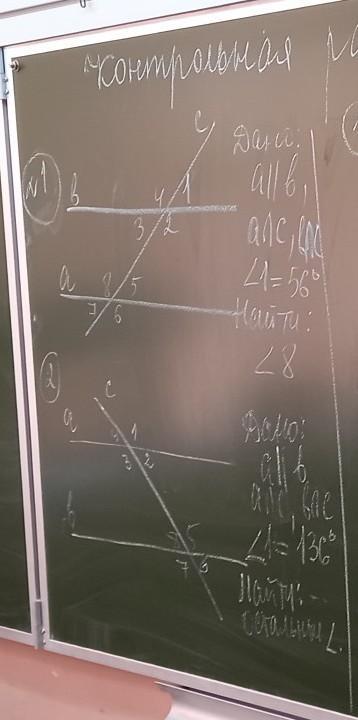 Контрольная
№1
Дано:
a∥b,
a∧c,
∠1=56°
Найти:
∠8
c
b
4 1
3 2
a
8 5
7 6
2
Дано:
a∥b
∠1=136°
Найти:
остальные ∠.
c
a
1
3 2
b
5
7 6